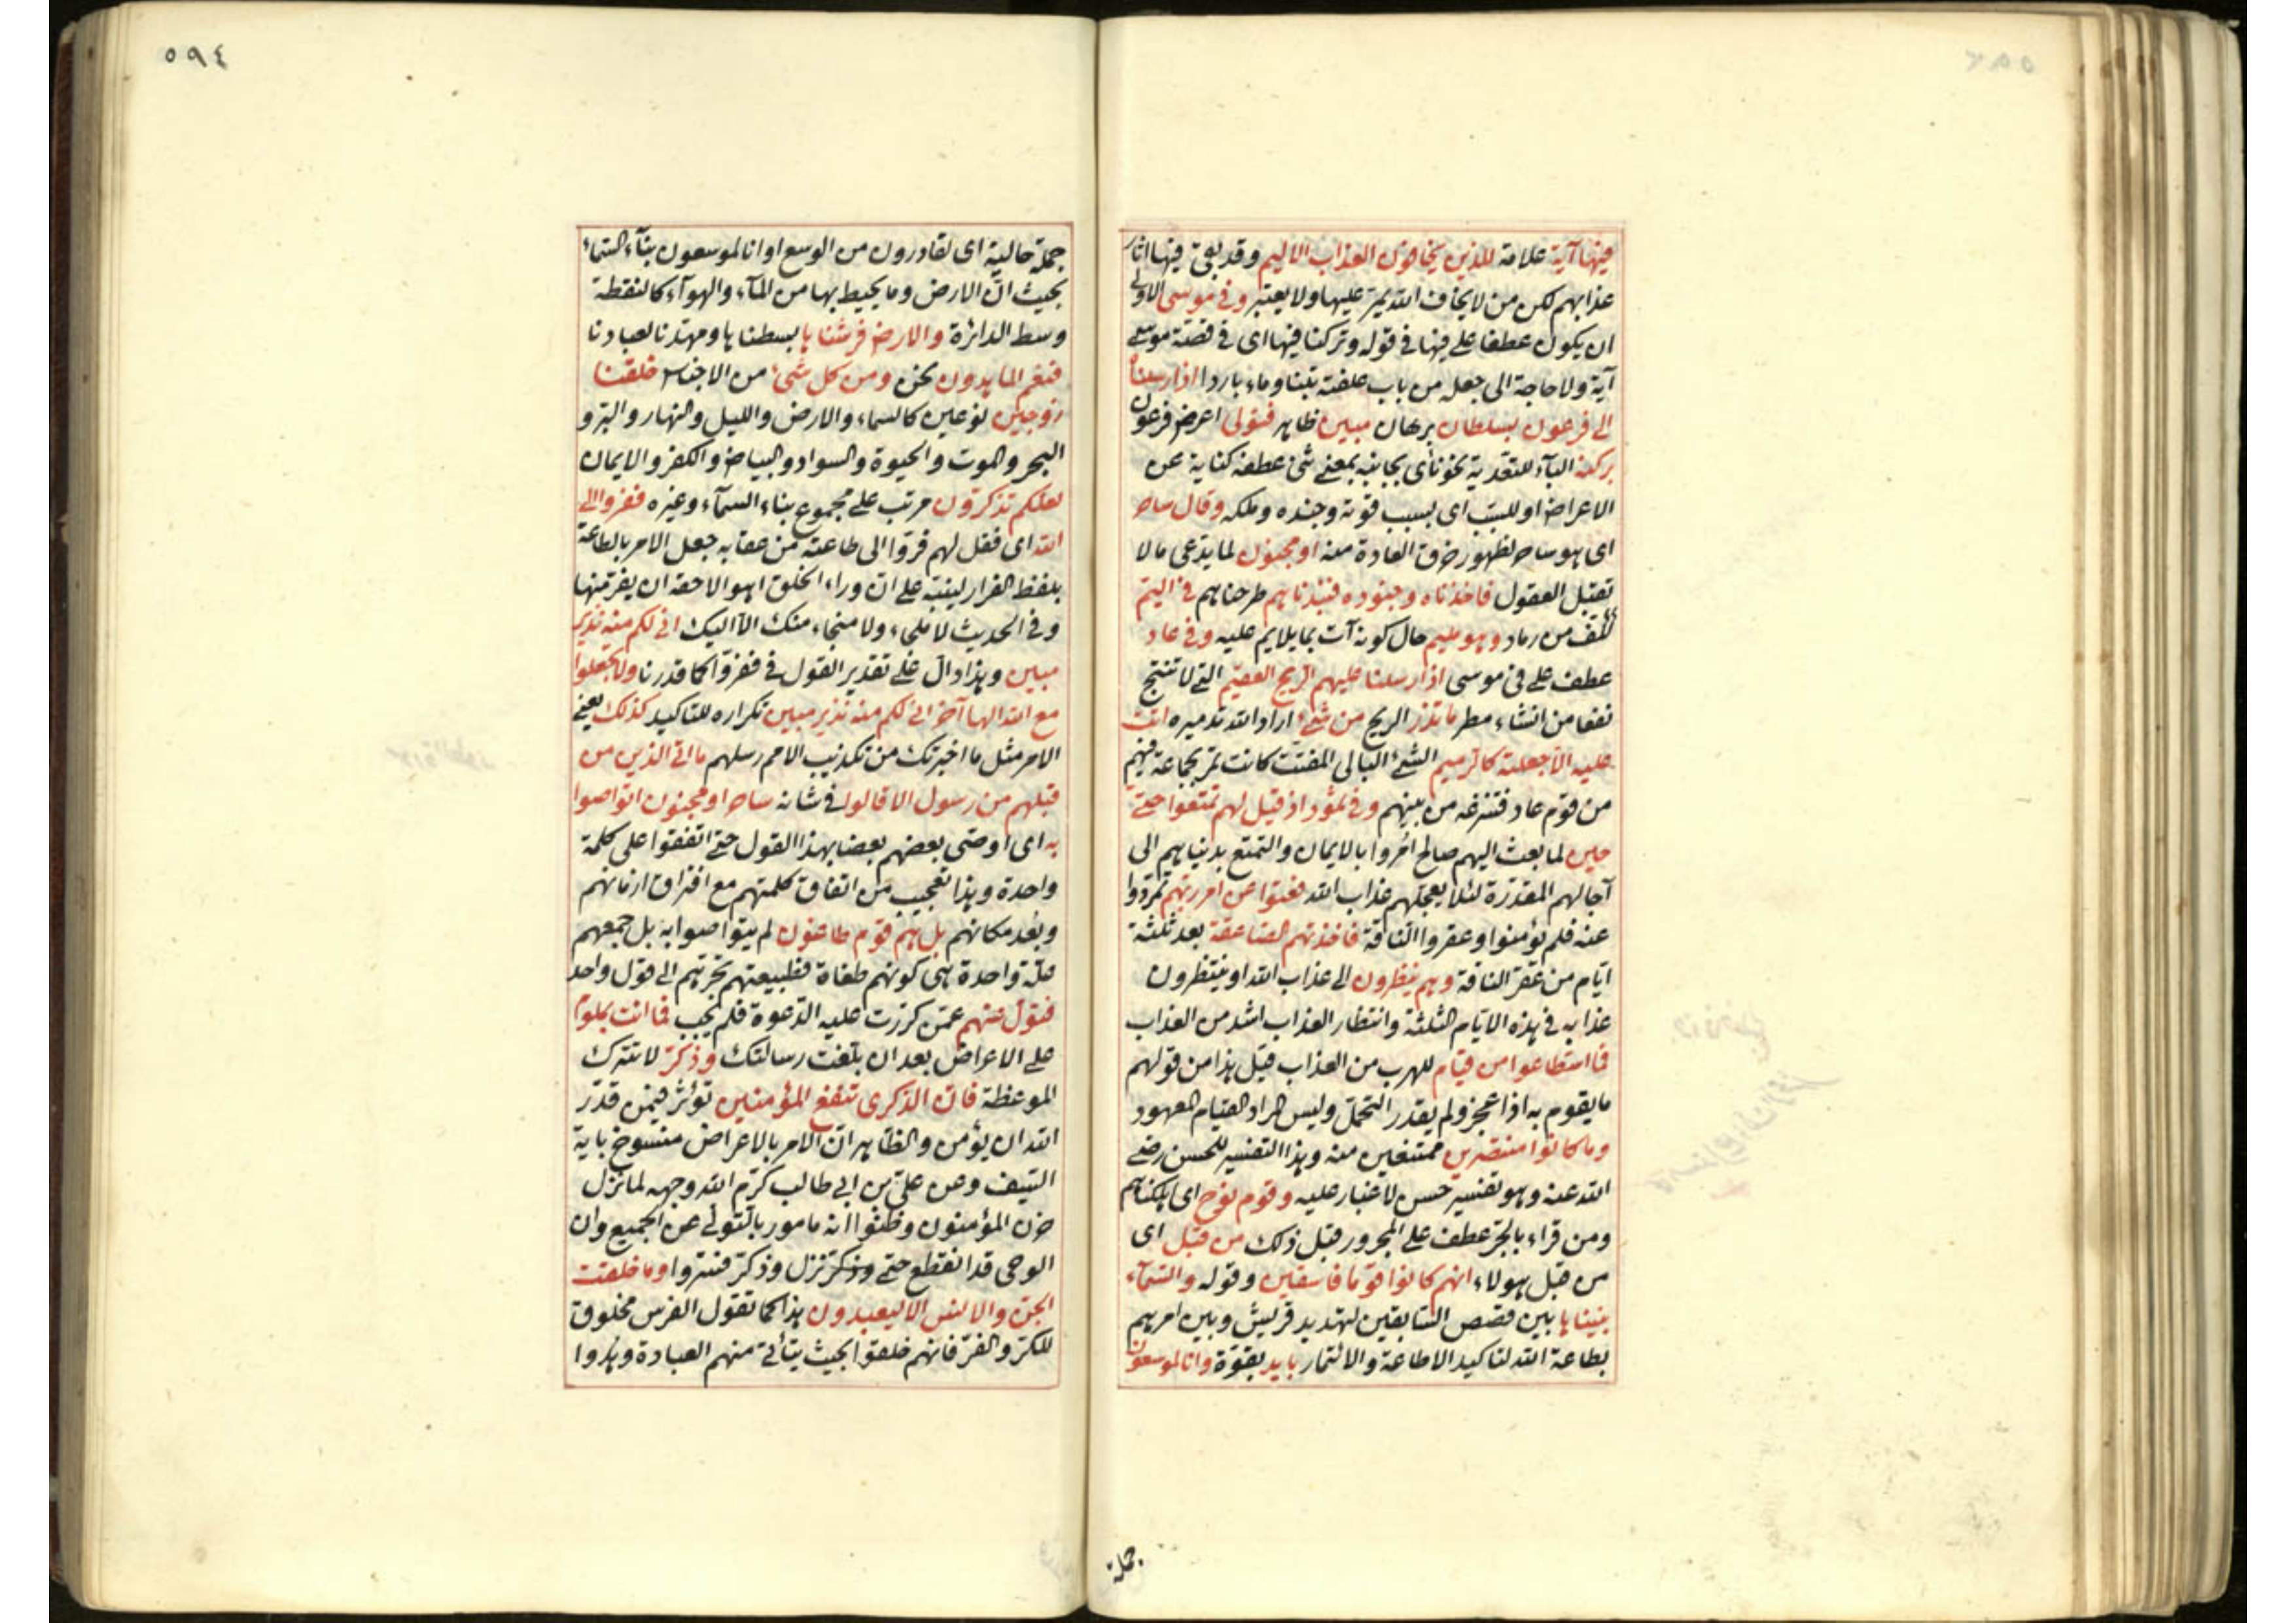 فيها آية علامة للذين يخافون العذاب الاليم وقد بقى فيها اثار
عذابهم لكن من لا يخاف الله يمر عليها ولا يعتبر وفى موسى الاولى
ان يكون عطفا على فيها فى قوله وتركنا فيها اى فى قصة موسى
آية ولا حاجة الى جعل من باب علفته تبنا وماء باردا اذ ارسلناه
الى فرعون بسلطان برهان مبين ظاهر فتولى اعرض فرعون
بركنه الباء للتعدية نحو نأى بجانبه بمعنى ثنى عطفه كناية عن
الاعراض او للسبب اى بسبب قوته وجنده وملكه وقال ساحر
اى هو ساحر لظهور خرق العادة منه او مجنون لما يدعى ما لا
تقبل العقول فاخذناه وجنوده فنبذناهم طرحناهم فى اليم
من رماد وهو مليم حال كونه آت بما يلايم عليه وفى عاد
عطف على فى موسى اذ ارسلنا عليهم الريح العقيم التى لا تنتج
نفعا من انشاء مطر ما تذر الريح من شىء اراد الله تدميره اتت
عليه الا جعلته كالرميم الشىء البالى المفتت كانت تمر بجماعة فيهم
من قوم عاد فتنزعه من بينهم وفى ثمود اذ قيل لهم تمتعوا حتى
حين لما بعث اليهم صالح امروا بالايمان والتمتع بدنياهم الى
آجالهم المقدرة لئلا يعجلهم عذاب الله فعتوا عن امر ربهم تمردوا
عنه فلم يؤمنوا وعقروا الناقة فاخذتهم الصاعقة بعد ثلثة
ايام من عقر الناقة وهم ينظرون الى عذاب الله او ينتظرون
عذابه فى هذه الايام الثلثة وانتظار العذاب اشد من العذاب
فما استطاعوا من قيام للهرب من العذاب قيل هذا من قولهم
ما يقوم به اذا عجز ولم يقدر التحمل وليس المراد القيام المعهود
وما كانوا منتصرين ممتنعين منه وهذا التفسير للحسن رضى
الله عنه وهو تفسير حسن لا غبار عليه وقوم نوح اى اهلكناهم
ومن قراء بالجر عطف على المجرور قبل ذلك من قبل اى
من قبل هولاء انهم كانوا قوما فاسقين وقوله والسماء
بنيناها بين قصص السابقين لتهديد قريش وبين امرهم
بطاعة الله لتاكيد الاطاعة والائتمار بايد بقوة وانا لموسعون
جملة
٥٩٤
جملة حالية اى لقادرون من الوسع او انا لموسعون بناء السماء
بحيث ان الارض وما يحيط بها من الماء والهواء كالنقطة
وسط الدائرة والارض فرشناها بسطناها ومهدنا لعبادنا
فنعم الماهدون نحن ومن كل شىء من الاجناس خلقنا
زوجين نوعين كالسماء والارض والليل والنهار والبر و
البحر والموت والحيوة والسواد والبياض والكفر والايمان
لعلكم تذكرون مرتب على مجموع بناء السماء وغيره ففروا الى
الله اى فقل لهم فروا الى طاعته من عقابه جعل الامر بالطاعة
بلفظ الفرار لينبه على ان وراء الخلق اهوالا حقه ان يفر منها
وفى الحديث لا ملجاء ولا منجاء منك الا اليك انى لكم منه نذير
مبين وهذا دال على تقدير القول فى ففروا كما قدرنا ولا تجعلوا
مع الله الها آخر انى لكم منه نذير مبين تكراره للتاكيد كذلك يعنى
الامر مثل ما اخبرتك من تكذيب الامم رسلهم ما اتى الذين من
قبلهم من رسول الا قالوا فى شانه ساحر او مجنون اتواصوا
به اى اوصى بعضهم بعضا بهذا القول حتى اتفقوا على كلمة
واحدة وهذا تعجيب من اتفاق كلمتهم مع افتراق ازمانهم
وبعد مكانهم بل هم قوم طاغون لم يتواصوا به بل جمعهم
علة واحدة هى كونهم طغاة فطبيعتهم تجرهم الى قول واحد
فتول عنهم عمن كررت عليه الدعوة فلم يجب فما انت بملوم
على الاعراض بعد ان بلغت رسالتك وذكر لا تترك
الموعظة فان الذكرى تنفع المؤمنين تؤثر فيمن قدر
الله ان يؤمن والظاهر ان الامر بالاعراض منسوخ باية
السيف وعن على بن ابى طالب كرم الله وجهه لما نزل
حزن المؤمنون وظنوا انه مامور بالتولى عن الجميع وان
الوحى قد انقطع حتى وذكر نزل وذكر فسروا وما خلقت
الجن والانس الا ليعبدون هذا كما تقول الفرس مخلوق
للكر والفر فانهم خلقوا بحيث يتأتى منهم العبادة وهدوا